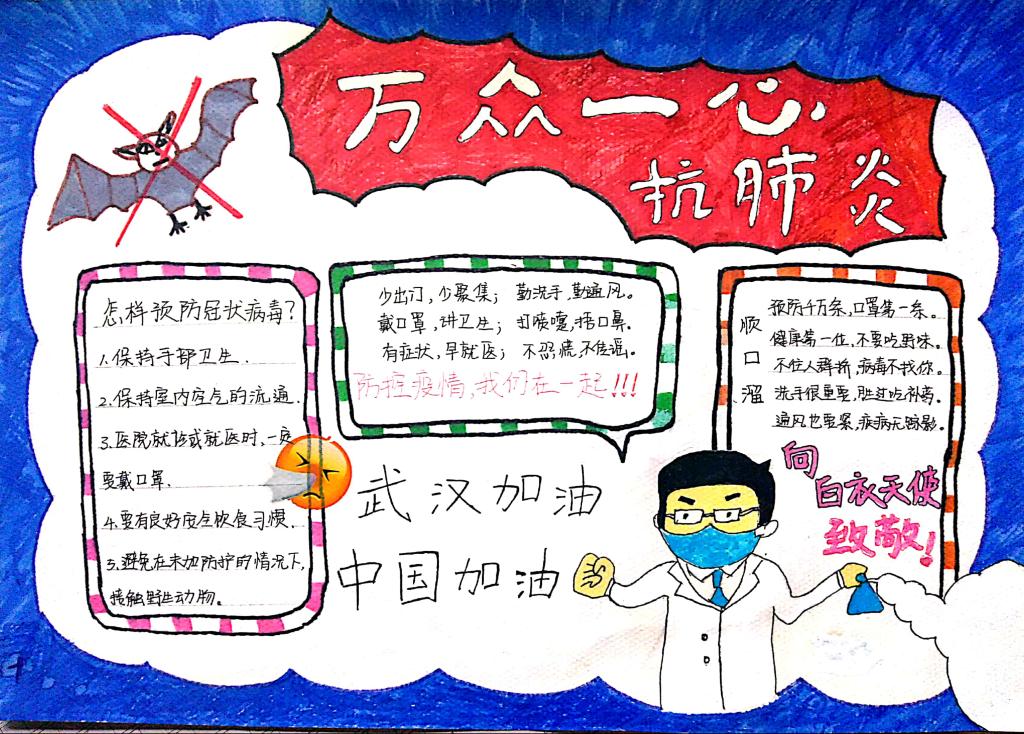 万众一心
抗肺炎
怎样预防冠状病毒?
1.保持手部卫生.
2.保持室内空气的流通.
3.医院就诊或就医时,一定
要戴口罩.
4.要有良好安全饮食习惯.
5.避免在未加防护的情况下,
接触野生动物。
少出门,少聚集;勤洗手,勤通风。
戴口罩,讲卫生;打喷嚏,捂口鼻。
有症状,早就医;不恐慌,不传谣。
防控疫情,我们在一起!!!
武汉加油
中国加油
顺口溜
预防千万条,口罩第一条。
健康第一位,不要吃野味。
不往人群挤,病毒不找你。
洗手很重要,胜过吃补药。
通风也要紧,疾病无踪影。
向
白衣天使
致敬!